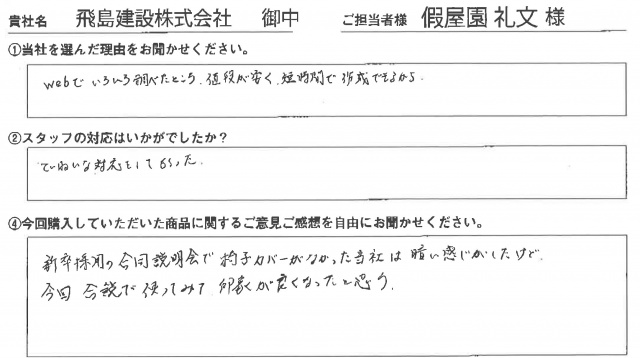 貴社名 飛島建設株式会社 御中 ご担当者様 假屋園 礼文 様
①当社を選んだ理由をお聞かせください。
webでいろいろ調べたところ、値段が安く、短時間で作成できるから。
②スタッフの対応はいかがでしたか？
ていねいな対応をしてもらった。
④今回購入していただいた商品に関するご意見ご感想を自由にお聞かせください。
新卒採用の合同説明会で椅子カバーがなかった当社は暗い感じがしたけど、
今回 合説で使ってみて 印象が良くなったと思う。